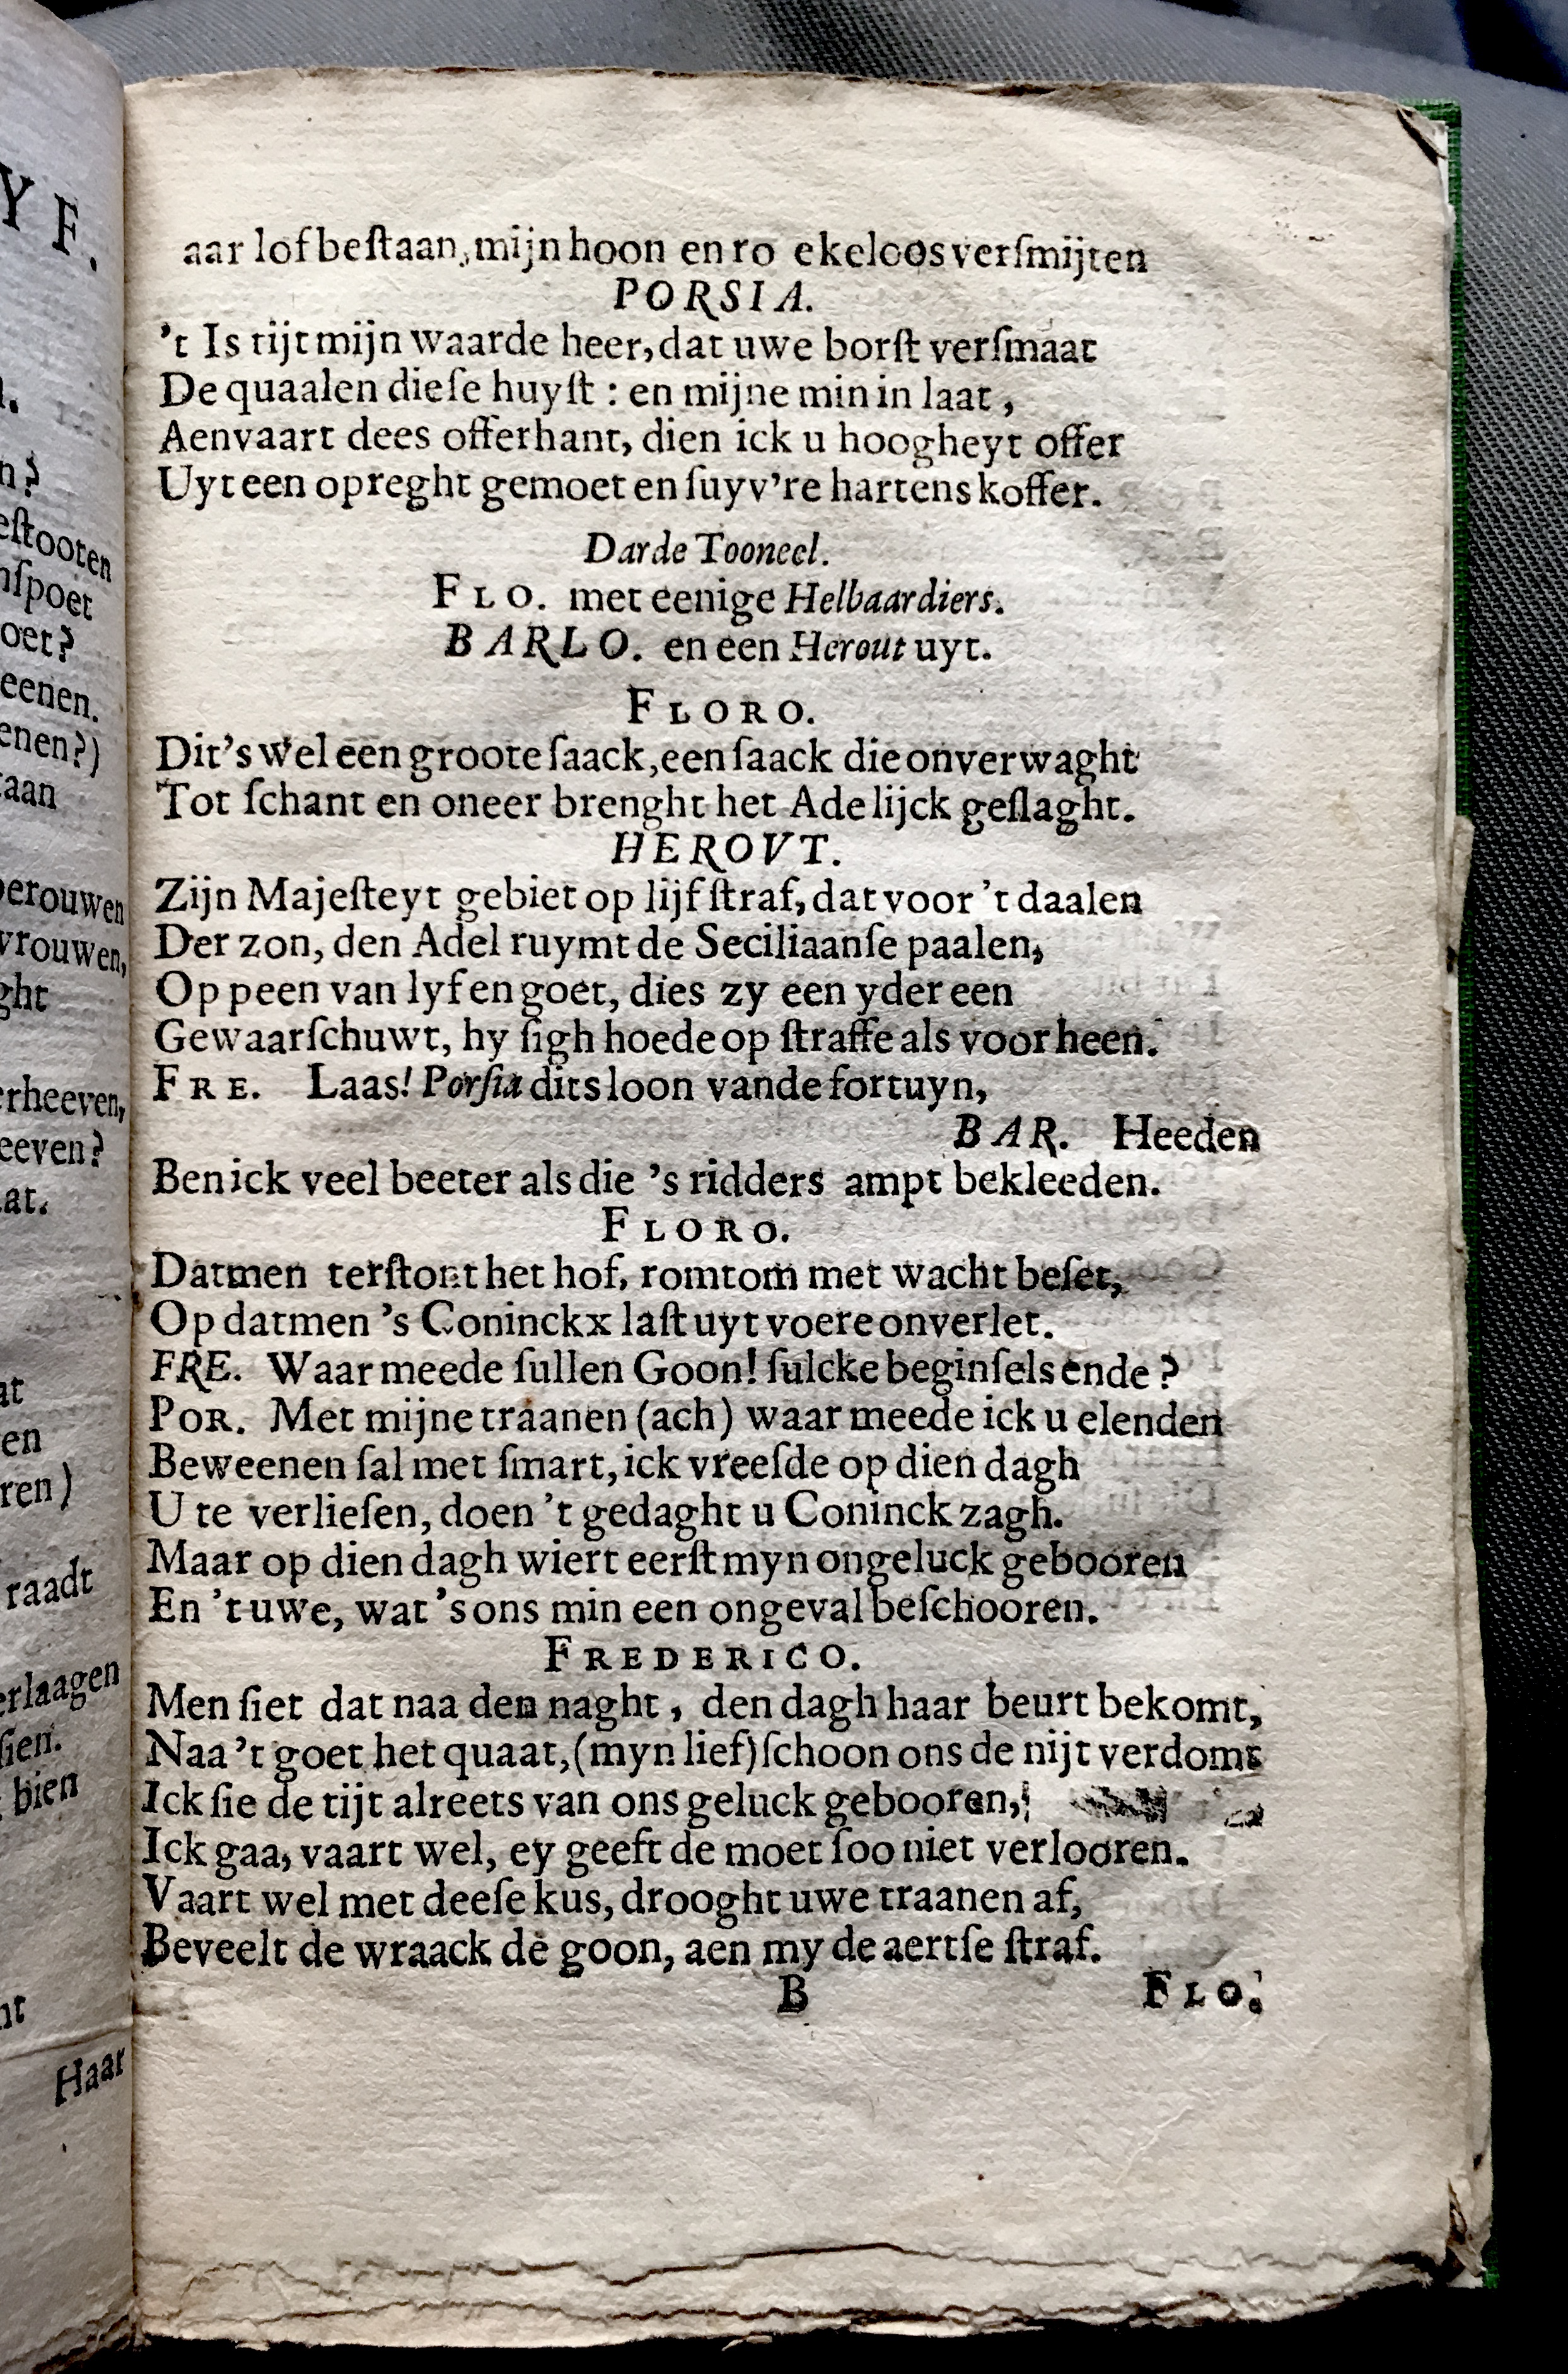 Y F.
n?
eſtooten
nſpoet
oet?
eenen.
enen?)
taan
berouwen
vrouwen,
ght
erheeven,
eeven?
at.
at
en
ren)
raadt
erlaagen
ſien.
bien
nt
Haar
aar lof beſtaan, mijn hoon en ro ekeloos verſmijten
PORSIA.
't Is tijt mijn waarde heer, dat uwe borſt verſmaat
De quaalen dieſe huyſt : en mijne min in laat ,
Aenvaart dees offerhant, dien ick u hoogheyt offer
Uyt een opreght gemoet en ſuyv're hartens koffer.
Darde Tooneel.
FLO. met eenige Helbaardiers.
BARLO. en een Herout uyt.
FLORO.
Dit's wel een groote ſaack, een ſaack die onverwaght
Tot ſchant en oneer brenght het Adelijck geſlaght.
HEROVT.
Zijn Majeſteyt gebiet op lijf ſtraf, dat voor 't daalen
Der zon, den Adel ruymt de Seciliaanſe paalen,
Op peen van lyf en goet, dies zy een yder een
Gewaarſchuwt, hy ſigh hoede op ſtraffe als voor heen.
FRE. Laas! Porſia dits loon vande fortuyn,
BAR. Heeden
Ben ick veel beeter als die 's ridders ampt bekleeden.
FLORO.
Datmen terſtont het hof, romtom met wacht beſet,
Op datmen 's Coninckx laſt uyt voere onverlet.
FRE. Waar meede ſullen Goon! ſulcke beginſels ende ?
POR. Met mijne traanen (ach) waar meede ick u elenden
Beweenen ſal met ſmart, ick vreeſde op dien dagh
U te verlieſen, doen 't gedaght u Coninck zagh.
Maar op dien dagh wiert eerſt myn ongeluck gebooren
En 't uwe, wat 's ons min een ongeval beſchooren.
FREDERICO.
Men ſiet dat naa den naght , den dagh haar beurt bekomt,
Naa 't goet het quaat, (myn lief) ſchoon ons de nijt verdomt
Ick ſie de tijt alreets van ons geluck gebooren,
Ick gaa, vaart wel, ey geeft de moet ſoo niet verlooren.
Vaart wel met deeſe kus, drooght uwe traanen af,
Beveelt de wraack de goon, aen my de aertſe ſtraf.
B FLO.